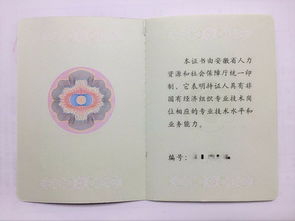 本证书由安徽省人力
资源和社会保障厅统一印
制，它表明持证人具有非
国有经济组织专业技术岗
位相应的专业技术水平和
业务能力。
编号：